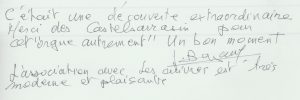 C'était une découverte extraordinaire
Merci des Castelsarrasin pour
cet "orgue autrement" Un bon moment
L'association avec les œuvres est très
moderne et plaisante